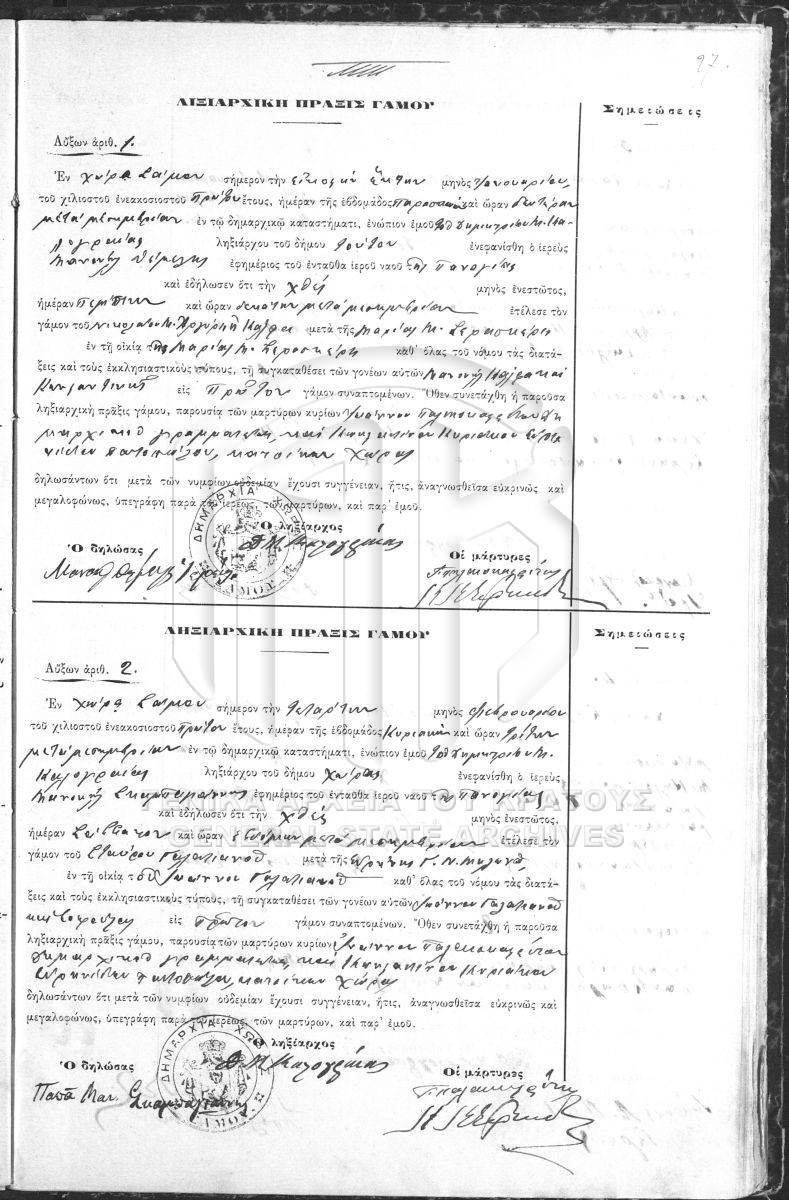 97.
ΛΙΞΙΑΡΧΙΚΗ ΠΡΑΞΙΣ ΓΑΜΟΥ
Σημειώσεις
Αὔξων ἀριθ. 1.
Ἐν Χώρᾳ Σάμου σήμερον τὴν εἰκοστὴν ἕκτην μηνὸς Ἰανουαρίου,
τοῦ χιλιοστοῦ ἐνεακοσιοστοῦ Πρώτου ἔτους, ἡμέραν τῆς ἑβδομάδος Παρασκευὴν καὶ ὥραν δευτέραν
μετὰ μεσημβρίαν ἐν τῷ δημαρχικῷ καταστήματι, ἐνώπιον ἐμοῦ τοῦ Δημητρίου Μ. Κα-
λογραιᾶς ληξιάρχου τοῦ δήμου τούτου ἐνεφανίσθη ὁ ἱερεὺς
Μανουὴλ ἐφημέριος τοῦ ἐνταῦθα ἱεροῦ ναοῦ τῆς Παναγίας
καὶ ἐδήλωσεν ὅτι τὴν χθὲς μηνὸς ἐνεστῶτος,
ἡμέραν Πέμπτην καὶ ὥραν δεκάτην μετὰ μεσημβρίαν ἐτέλεσε τὸν
γάμον τοῦ Νικολάου Μ. μετὰ τῆς Μαρίας Κ. Σερασκέρη
ἐν τῇ οἰκίᾳ τῆς Μαρίας Κ. Σερασκέρη καθ' ὅλας τοῦ νόμου τὰς διατά-
ξεις καὶ τοὺς ἐκκλησιαστικοὺς τύπους, τῇ συγκαταθέσει τῶν γονέων αὐτῶν Μανουὴλ καὶ
εἰς πρῶτον γάμον συναπτομένων. Ὅθεν συνετάχθη ἡ παροῦσα
ληξιαρχικὴ πρᾶξις γάμου, παρουσίᾳ τῶν μαρτύρων κυρίων Ἰωάννου
γραμματέως, καὶ Κωνσταντίνου Κυριακοῦ
παντοπώλου, κατοίκων Χώρας
δηλωσάντων ὅτι μετὰ τῶν νυμφίων οὐδεμίαν ἔχουσι συγγένειαν, ἥτις, ἀναγνωσθεῖσα εὐκρινῶς καὶ
μεγαλοφώνως, ὑπεγράφη παρὰ τοῦ ἱερέως, τῶν μαρτύρων, καὶ παρ' ἐμοῦ.
ΔΗΜΑΡΧΙΑ ΧΩΡ
Ὁ ληξίαρχος
Ὁ δηλώσας
Οἱ μάρτυρες
ΛΗΞΙΑΡΧΙΚΗ ΠΡΑΞΙΣ ΓΑΜΟΥ
Σημειώσεις
Αὔξων ἀριθ. 2.
Ἐν Χώρᾳ Σάμου σήμερον τὴν τετάρτην μηνὸς Φεβρουαρίου
τοῦ χιλιοστοῦ ἐνεακοσιοστοῦ Πρώτου ἔτους, ἡμέραν τῆς ἑβδομάδος Κυριακὴν καὶ ὥραν τρίτην
μετὰ μεσημβρίαν ἐν τῷ δημαρχικῷ καταστήματι, ἐνώπιον ἐμοῦ τοῦ Δημητρίου Μ.
Καλογραιᾶς ληξιάρχου τοῦ δήμου Χώρας ἐνεφανίσθη ὁ ἱερεὺς
Μανουὴλ ἐφημέριος τοῦ ἐνταῦθα ἱεροῦ ναοῦ τῆς Παναγίας
ΓΕΝΙΚΑ ΑΡΧΕΙΑ ΤΟΥ ΚΡΑΤΟΥΣ
καὶ ἐδήλωσεν ὅτι τὴν χθὲς μηνὸς ἐνεστῶτος,
GENERAL STATE ARCHIVES
ἡμέραν Σάββατον καὶ ὥραν ἑβδόμην μετὰ μεσημβρίαν ἐτέλεσε τὸν
γάμον τοῦ Σταύρου Γαλατιανοῦ μετὰ τῆς Εἰρήνης Γ. Ν.
ἐν τῇ οἰκίᾳ τοῦ Ἰωάννου Γαλατιανοῦ καθ' ὅλας τοῦ νόμου τὰς διατά-
ξεις καὶ τοὺς ἐκκλησιαστικοὺς τύπους, τῇ συγκαταθέσει τῶν γονέων αὐτῶν Ἰωάννου Γαλατιανοῦ
εἰς πρῶτον γάμον συναπτομένων. Ὅθεν συνετάχθη ἡ παροῦσα
ληξιαρχικὴ πρᾶξις γάμου, παρουσίᾳ τῶν μαρτύρων κυρίων Ἰωάννου
δημαρχικοῦ γραμματέως, καὶ Κωνσταντίνου Κυριακοῦ
παντοπώλου, κατοίκων Χώρας
δηλωσάντων ὅτι μετὰ τῶν νυμφίων οὐδεμίαν ἔχουσι συγγένειαν, ἥτις, ἀναγνωσθεῖσα εὐκρινῶς καὶ
μεγαλοφώνως, ὑπεγράφη παρὰ τοῦ ἱερέως, τῶν μαρτύρων, καὶ παρ' ἐμοῦ.
ΔΗΜΑΡΧΙΑ ΧΩΡ
Ὁ ληξίαρχος
Ὁ δηλώσας
Οἱ μάρτυρες
Παπᾶ Μαν.